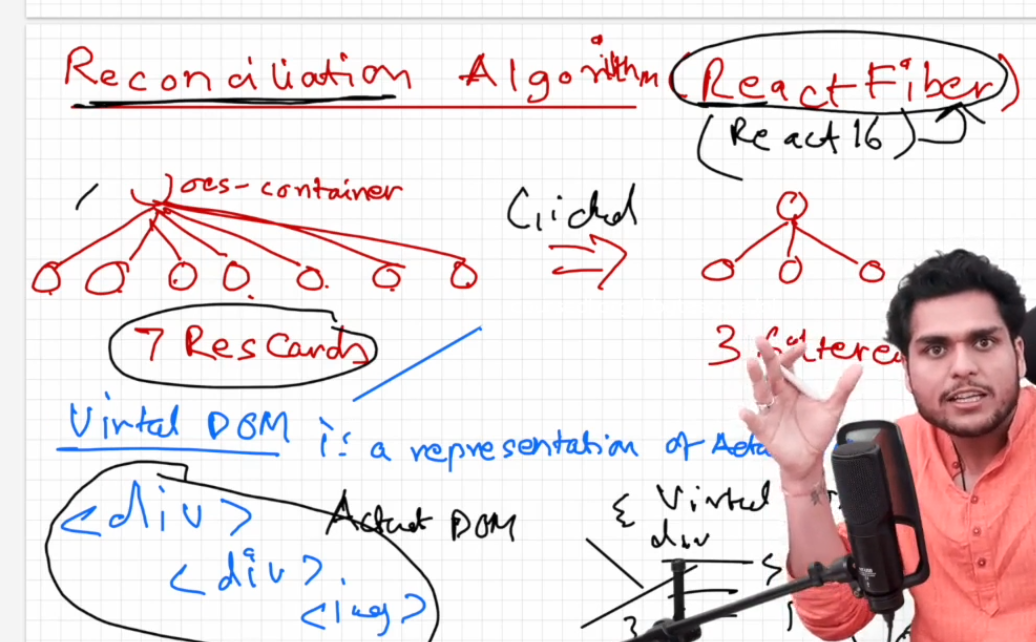 Reconciliation Algorithm (React Fiber)
(React 16)
res-container
Clicked
7 ResCards
3 filtere
Virtal DOM is a representation of Actu
<div>
Actual DOM
{ Virtual
div
<div>
<img>